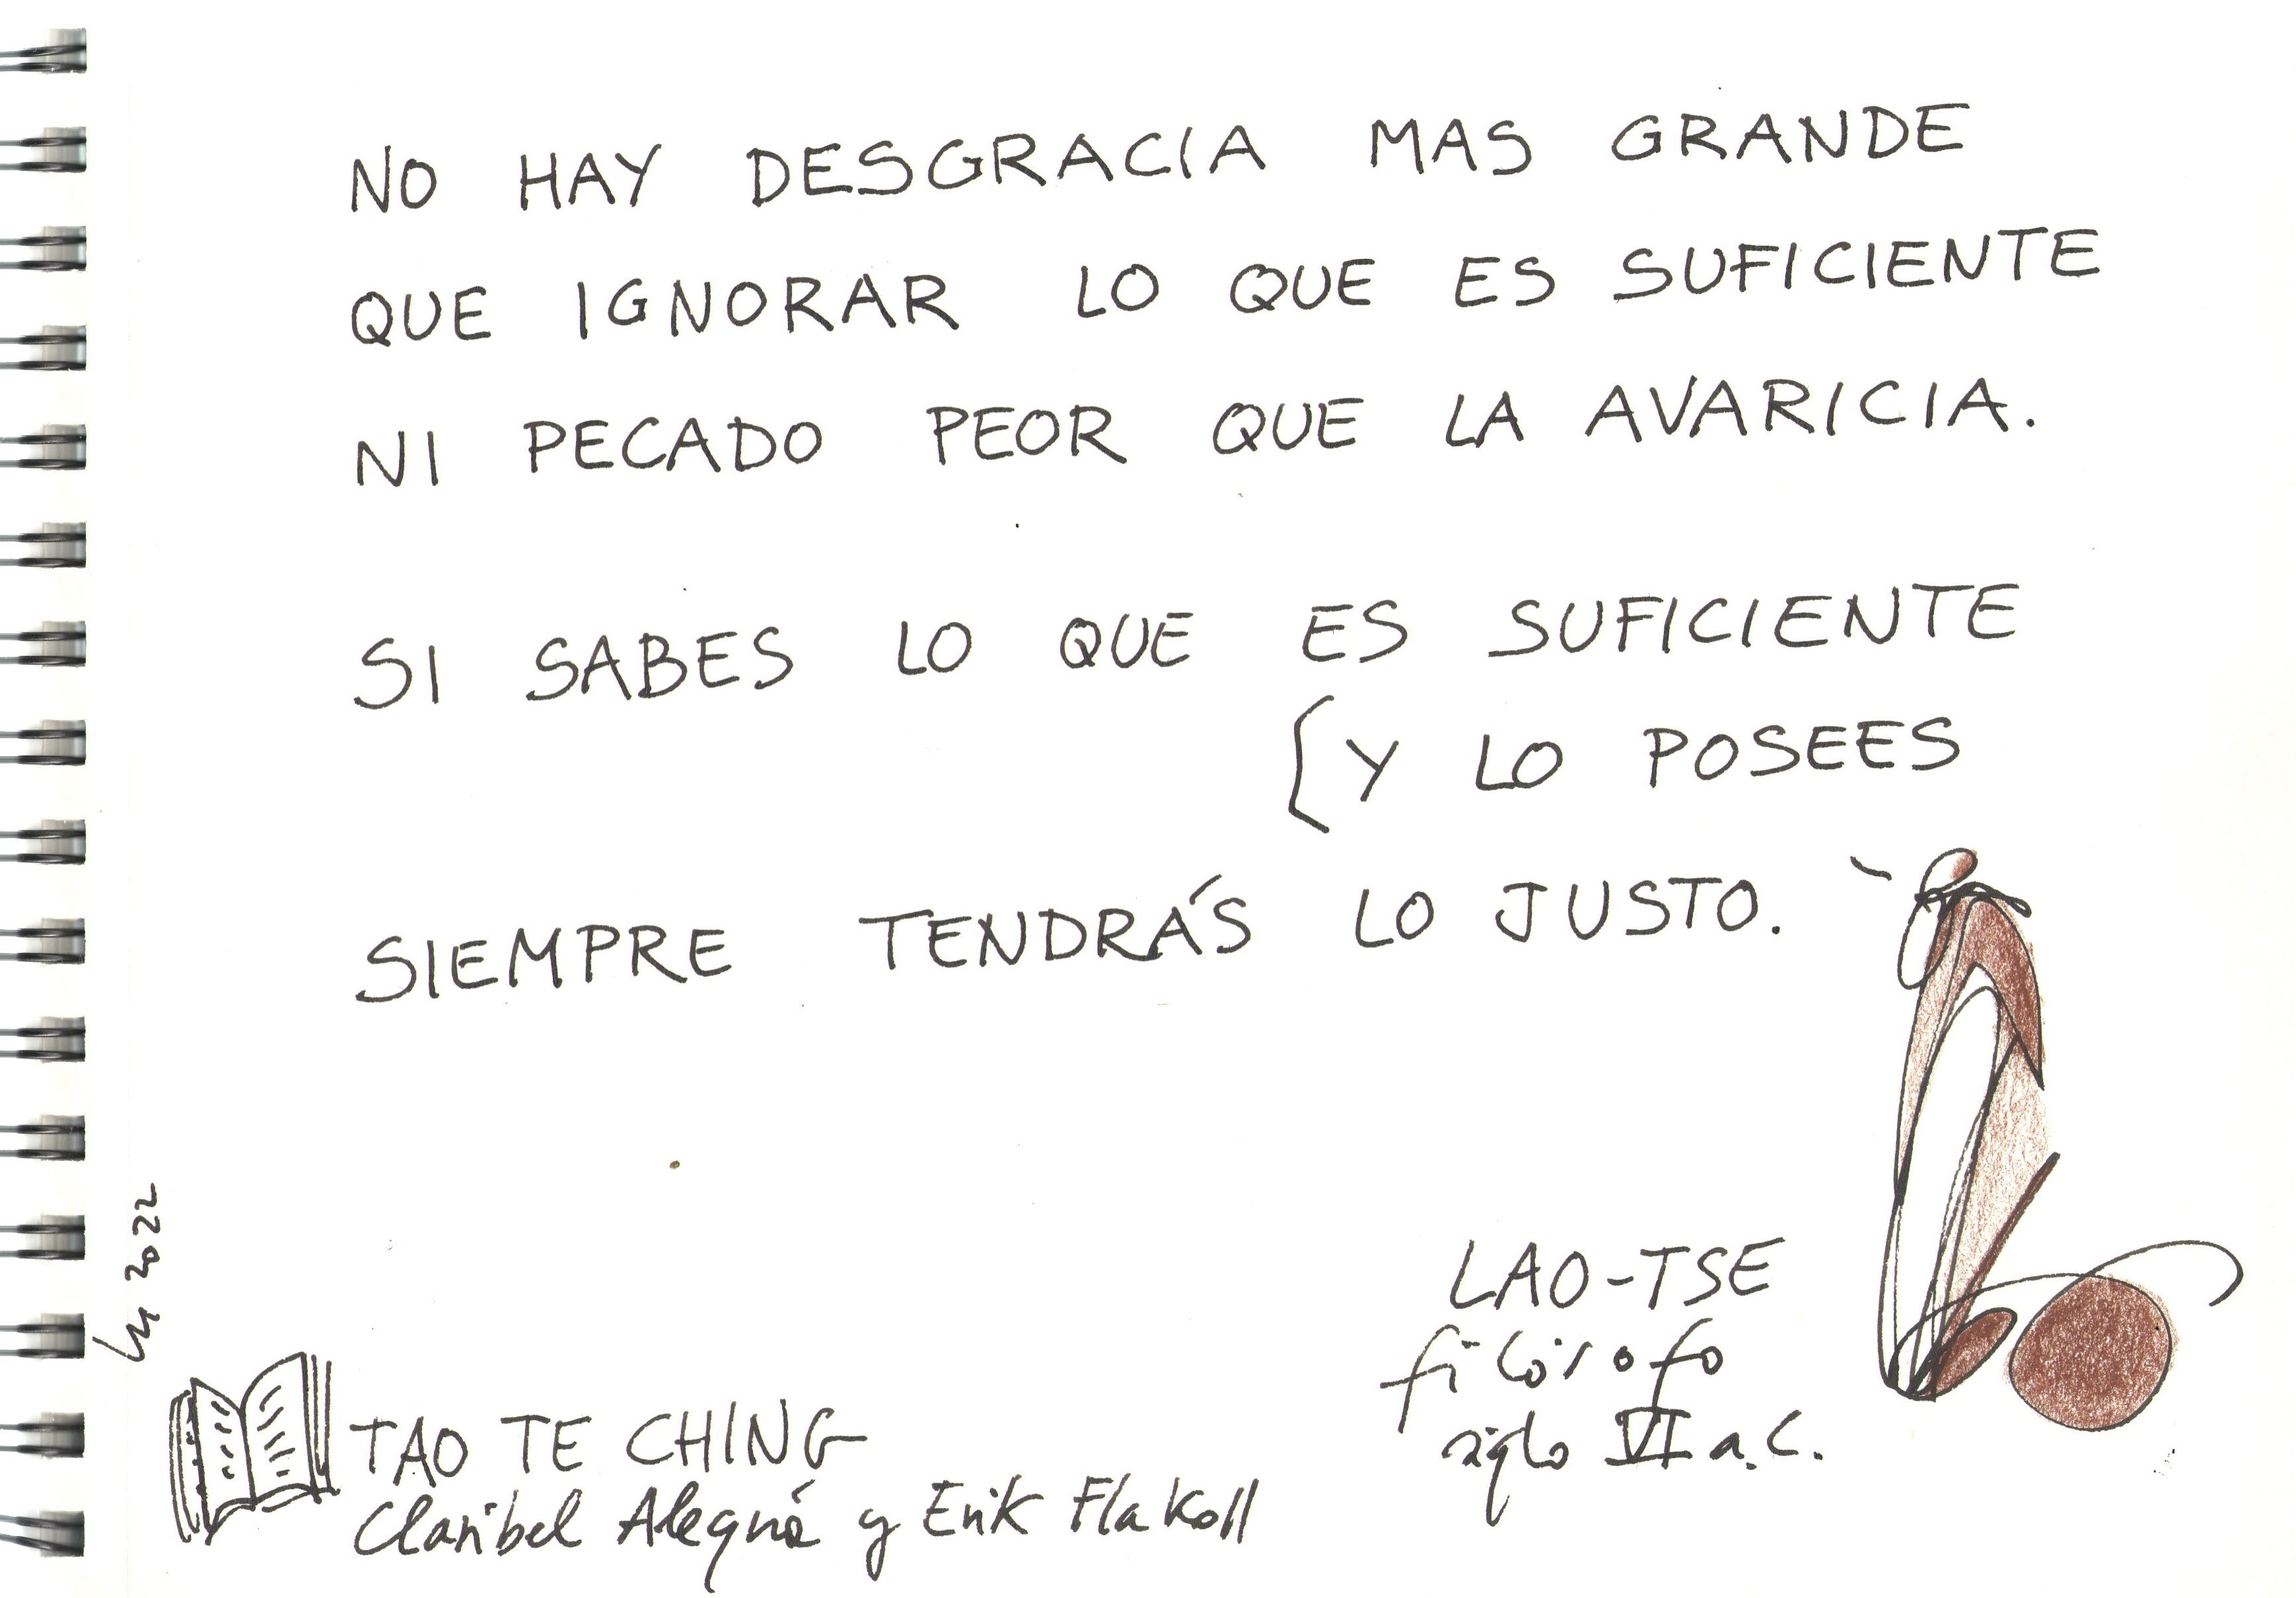 NO HAY DESGRACIA MAS GRANDE
QUE IGNORAR LO QUE ES SUFICIENTE
NI PECADO PEOR QUE LA AVARICIA.
SI SABES LO QUE ES SUFICIENTE
[Y LO POSEES
SIEMPRE TENDRÁS LO JUSTO.
LAO-TSE
filósofo
siglo VI a.C.
TAO TE CHING
Claribel Alegría y Erik Flakoll
2022